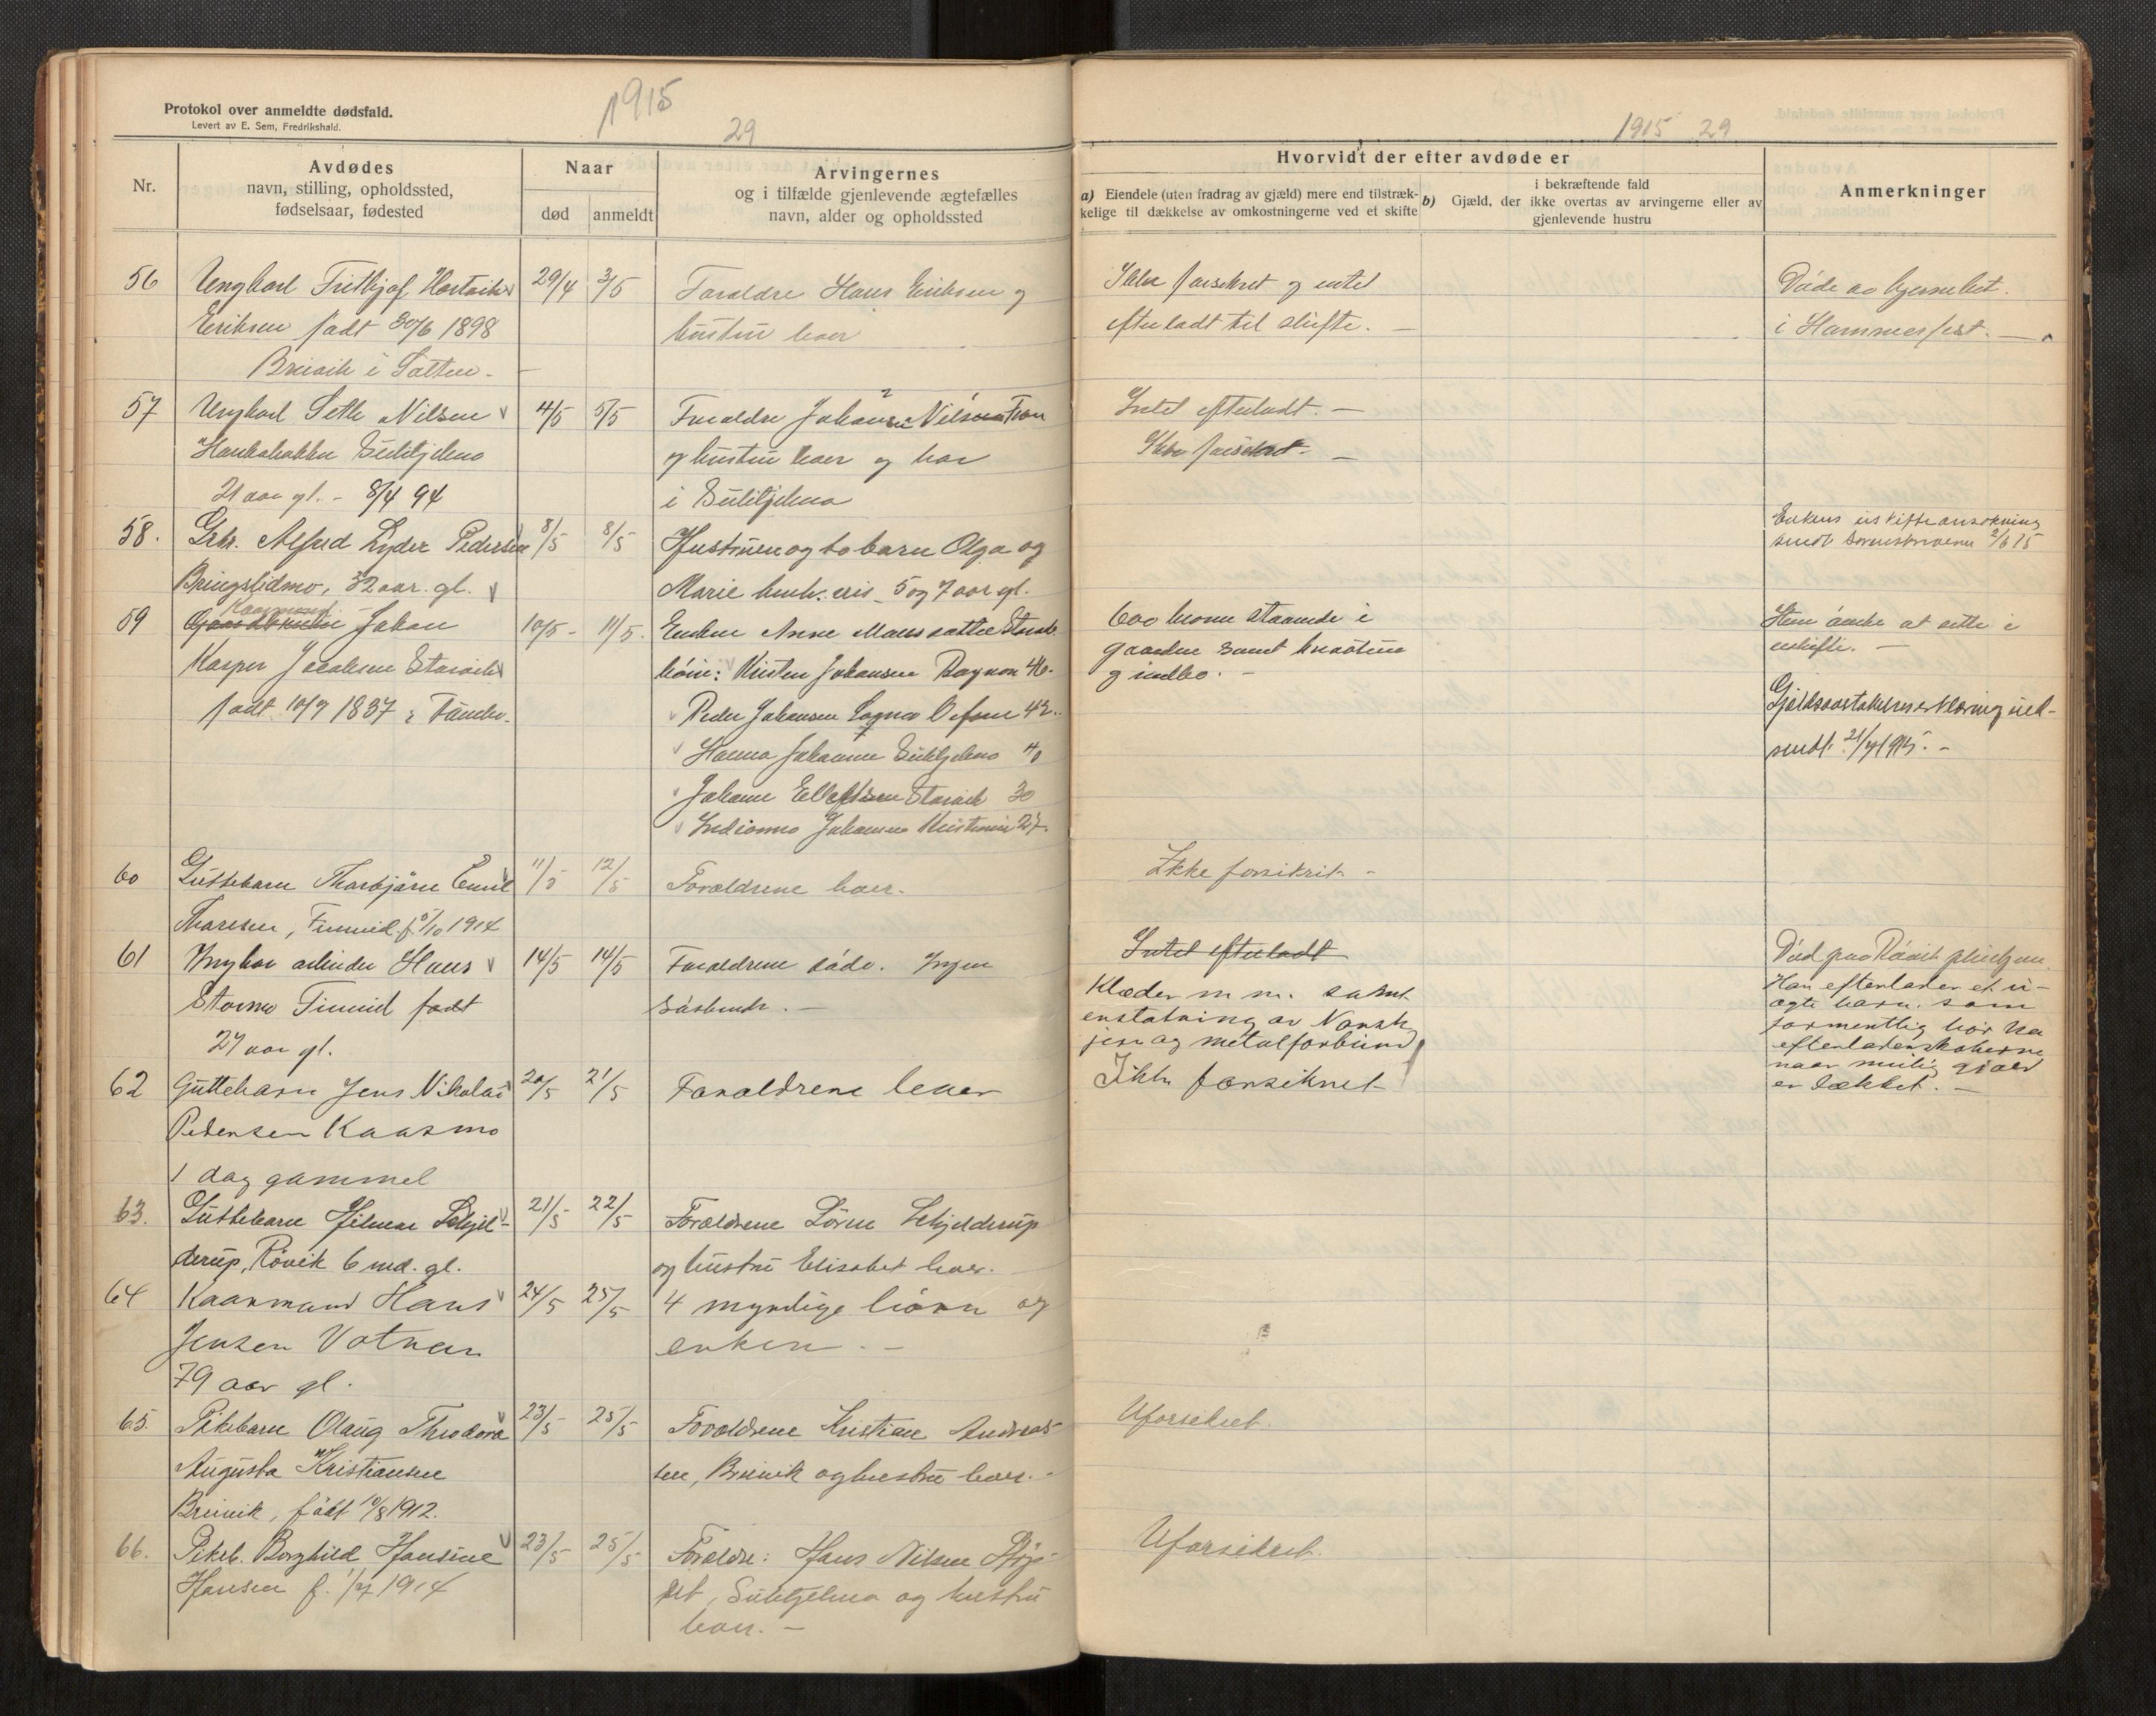 Protokol over anmeldte dødsfald.
Levert av E. Sem, Fredrikshald.
1915
29
Nr.
Avdødes
navn, stilling, opholdssted,
fødselsaar, fødested
Naar
død
anmeldt
Arvingernes
og i tilfælde gjenlevende ægtefælles
navn, alder og opholdssted
56
Ungkarl Frithjof
Eriksen født 30/6 1898
Breivik i Salten.
29/4
3/5
Forældre Hans Eriksen og
hustru lever
57
Ungkarl Seth Nilsen
Hankabakken Sulitjelma
21 aar gl. - 8/4 94
4/5
5/5
Forældre Johan Nilsen
og hustru lever og bor
i Sulitjelma
58.
Grbr. Alfred Lyder Pedersen
Bringslidmo, 32 aar. gl.
8/5
8/5
Hustruen og to barn Olga og
Marie henh.vis 5 og 7 aar gl.
59
Kaarmand
Gaardbruker Johan
Kasper Jacobsen Storvik
født 10/9 1837 i
10/5 -
11/5.
Enken Anne
børn: Kristen Johansen Rognan 46.
Peder Johansen 42.
Hanna Johansen Sulitjelma 40
Johanne Ellefsen Storvik 30
Indianna Johansen 27.
60
Guttebarn Thorbjørn Emil
Thoresen, Finneid. f. 5/10 1914
11/5
12/5
Forældrene lever.
61
Ungkar arbeider Hans
Stormo Finneid født
27 aar gl.
14/5
14/5
Forældrene døde. Ingen
søskende. —
62
Guttebarn Jens Nikolai
Pedersen Kaasmo
1 dag gammel
20/5
21/5
Forældrene lever
63.
Guttebarn Hilmar Schjel-
derup, Røvik 6 md. gl.
21/5
22/5
Forældrene Sören Schjelderup
og hustru Elisabet lever.
64
Kaarmand Hans
Jensen Votnan
79 aar gl.
24/5
25/5
4 myndige börn og
enken. —
65.
Pikebarn Olaug Theodora
Augusta Kristiansen
Breivik, født 10/8 1912.
23/5
25/5
Forældrene Kristian Andreas-
sen, Breivik og hustru lever. -
66.
Pikeb. Borghild Hansine
Hansen f. 1/7 1914
23/5
25/5
Forældre: Hans Nilsen
Sulitjelma og hustru
lever. —
1915 29
Hvorvidt der efter avdøde er
a) Eiendele (uten fradrag av gjæld) mere end tilstræk-
kelige til dækkelse av omkostningerne ved et skifte
b)
i bekræftende fald
Gjæld, der ikke overtas av arvingerne eller av
gjenlevende hustru
Anmerkninger
Ikke forsikret og intet
efterladt til skifte. —
Døde av hjernebet.
i Hammerfest. —
Intet efterladt. —
Ikke forsikret. —
Enkens uskifteansøkning
sendt Sorenskriveren 2/6 15
600 kroner staaende i
gaarden samt kreaturer
og indbo. -
Hun ønsker at sitte i
uskifte. —
Gjeldsovertakelseserklæring ind-
sendt 21/7 1915. -
Ikke forsikret. -
Intet efterladt
Klæder m m. samt
erstatning av Norsk
jern og metalforbund
Død paa Røvik pleiehjem.
Han efterlader et u-
ægte barn, som
formentlig bör ha
efterladenskaberne
naar mulig gjæld
er dækket. —
Ikke forsikret
Uforsikret.
Uforsikret.